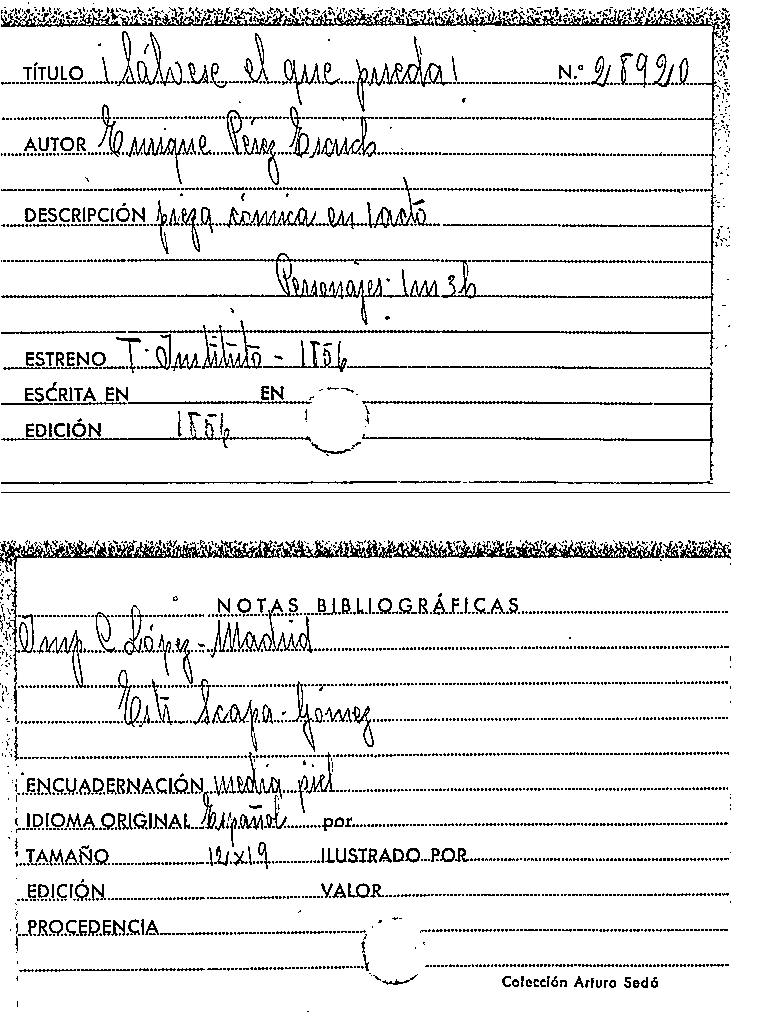 TÍTULO ¡Sálvese el que pueda! N.º 28920
AUTOR Enrique Pérez Escrich
DESCRIPCIÓN pieza cómica en 1 acto
Personajes: 1m 3h
ESTRENO T. Instituto - 1856
ESCRITA EN EN
EDICIÓN 1856
NOTAS BIBLIOGRÁFICAS
Imp C. López - Madrid
Estr Scapa - Gómez
ENCUADERNACIÓN media piel
IDIOMA ORIGINAL Español por
TAMAÑO 12x19 ILUSTRADO POR
EDICIÓN VALOR
PROCEDENCIA
Colección Arturo Sedó